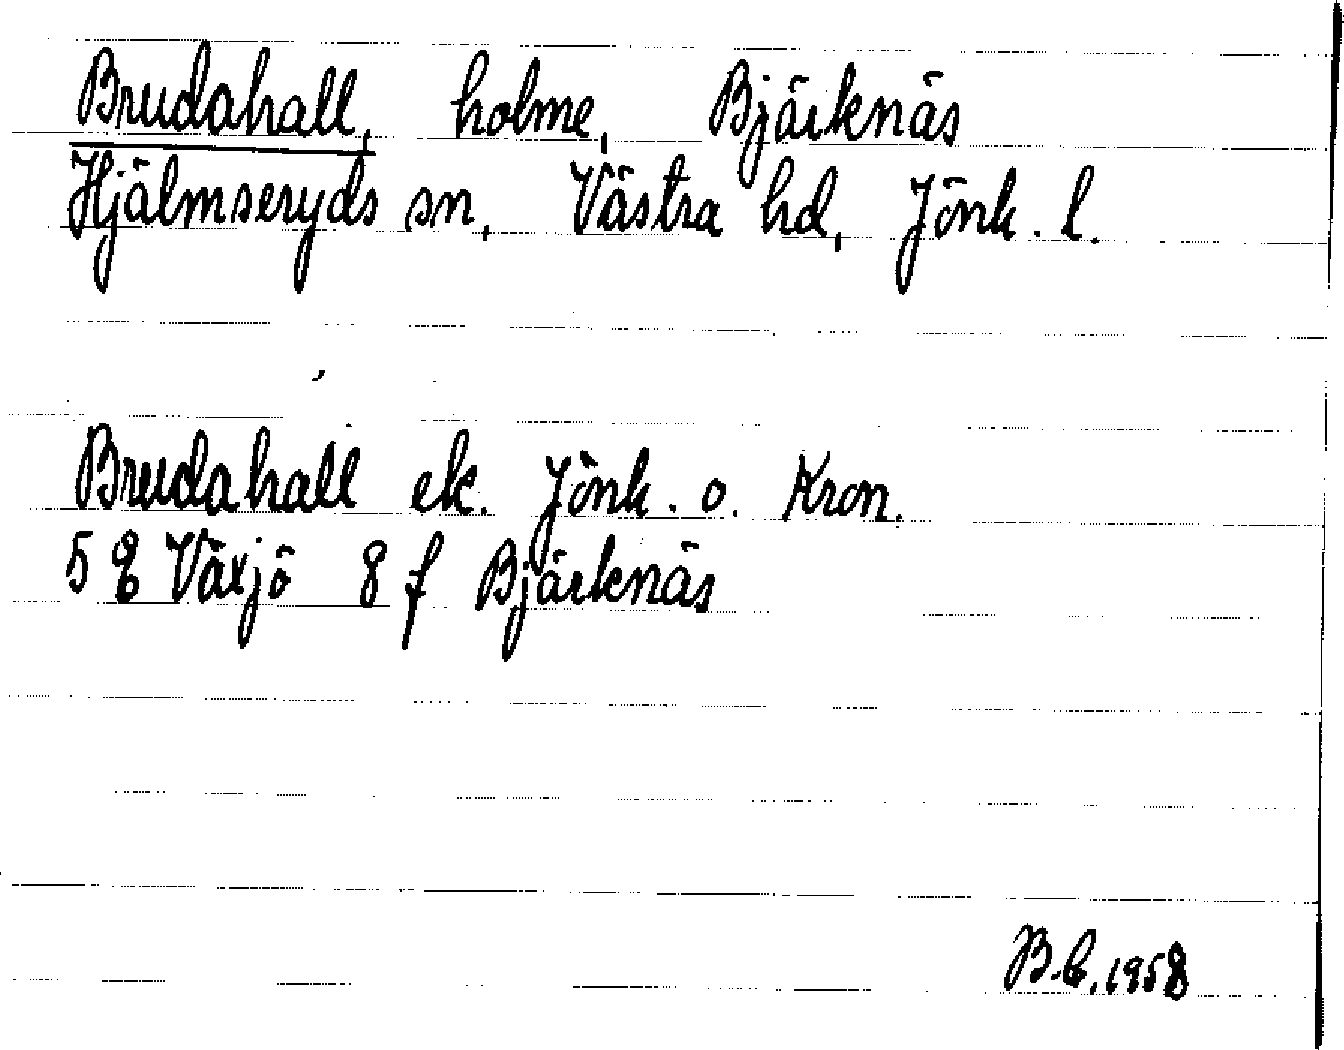 Brudahall, holme, Bjärknäs
Hjälmseryds sn, Västra hd, Jönk. l.
Brudahall ek. Jönk. o. Kron.
5 E Växjö 8 f Bjärknäs
B.E. 1958